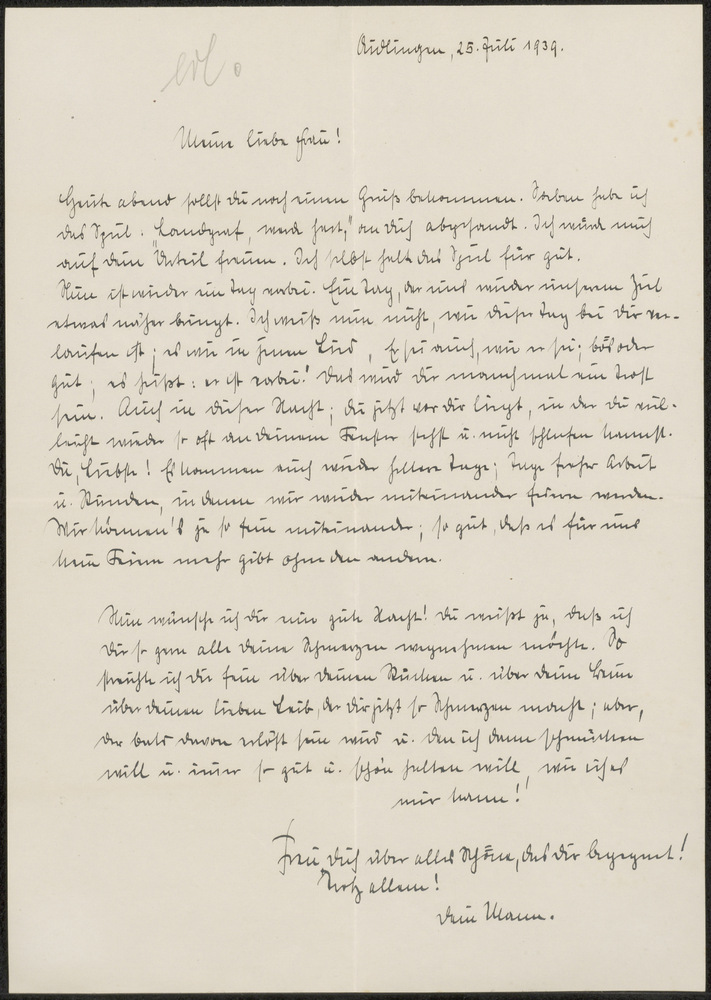 erl.
Aidlingen, 25. Juli 1939.
Meine liebe Frau!
Heute abend sollst Du noch einen Gruß bekommen. Soeben habe ich
das Spiel: „Landgraf, werde hart," an Dich abgesandt. Ich würde mich
auf Dein Urteil freuen. Ich selbst halt das Spiel für gut.
Nun ist wieder ein Tag vorbei. Ein Tag, der uns wieder unserem Ziel
etwas näher bringt. Ich weiß nun nicht, wie dieser Tag bei Dir ver-
laufen ist; es wie in jenem Lied, Er sei auch, wie er sei; bös oder
gut; es heißt: er ist vorbei! Das wird Dir manchmal ein Trost
sein. Auch in dieser Nacht; die jetzt vor Dir liegt, in der Du viel-
leicht wieder so oft an Deinem Fenster stehst u. nicht schlafen kannst.
Du, Liebste! Es kommen auch wieder hellere Tage; Tage froher Arbeit
u. Stunden, in denen wir wieder miteinander feiern werden.
Wir können's ja so fein miteinander; so gut, daß es für uns
kein Feiern mehr gibt ohne den andern.
Nun wünsche ich Dir eine gute Nacht! Du weißt ja, daß ich
Dir so gern alle Deine Schmerzen wegnehmen möchte. So
streichle ich Dir fein über Deinen Rücken u. über Deine Beine
über Deinen lieben Leib, der Dir jetzt so Schmerzen macht; aber,
der bald davon erlöst sein wird u. den ich dann schmücken
will u. immer so gut u. schön halten will, wie ich es
nur kann!
Freu Dich über alles Schöne, das Dir begegnet!
Trotz allem!
Dein Mann.